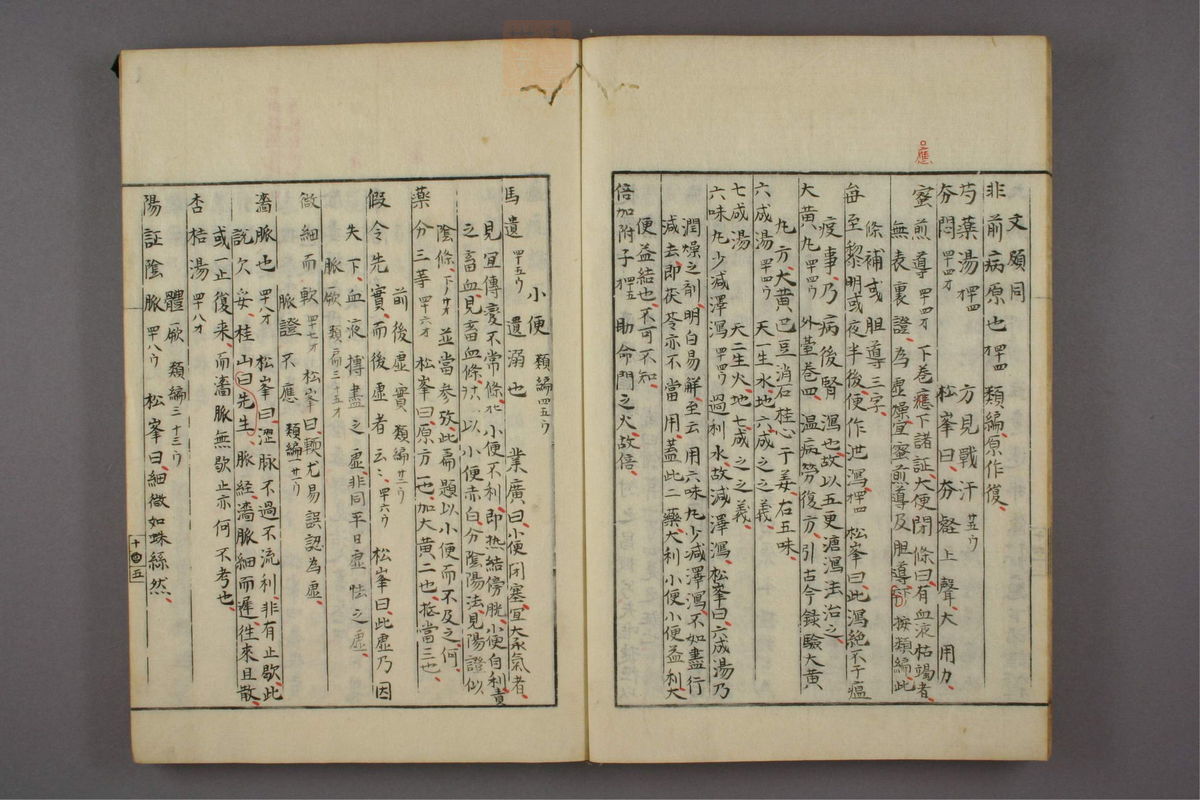 文願同
非前病原也 類編原作復
芍藥湯 方見戰汗
夯悶 松峯曰夯 上聲大用力
蜜煎導 下卷應下諸証大便閉條曰有血液枯竭者
應
無表裏證為虛燥宜蜜煎導及胆導 按類編此
條補或胆導三字
每至黎明或夜半後便作泄瀉 松峯曰此瀉絕不于瘟
疫事乃病後腎瀉也故以五更溏瀉法治之
大黃丸 外臺卷四温病勞復方引古今録驗大黃
丸方大黃巴豆消石桂心干姜右五味
六成湯 天一生水地六成之之義
七成湯 天二生火地七成之之義
六味丸少減澤瀉 過利水故減澤瀉松峯曰六成湯乃
潤燥之劑明白易解至云用六味丸少減澤瀉不如盡行
減去即茯苓亦不當用蓋此二藥大利小便小便益利大
便益結也不可不知
倍加附子 助命門之火故倍
小便 類編四五ウ
馬遺 遺溺也 業廣曰小便閉塞宜大承氣者
見宜傳變不常條 小便不利即熱結膀胱小便自利責
之畜血見畜血條 以小便赤白分陰陽法見陽證似
陰條下 並當参攷此扁題以小便而不及之何
藥分三等 松峯曰原方一也加大黃二也抵當三也
前後虛實 類編
假令先實而後虛者云々 松峯曰此虛乃因
失下血液搏盡之虛非同平日虛怯之虛
脉厥 類扁三十五才
微細而軟 松峯曰輭尤易誤認為虛
脈證不應 類編
濇脈也 松峯曰澀脉不過不流利非有止歇此
說欠妥桂山曰先生脈經濇脈細而遲往來且散
或一止復来而濇脈無歇止亦何不考也
杏桔湯
體厥 類編三十三ウ
陽証陰脈 松峯曰細微如蛛絲然
十四五